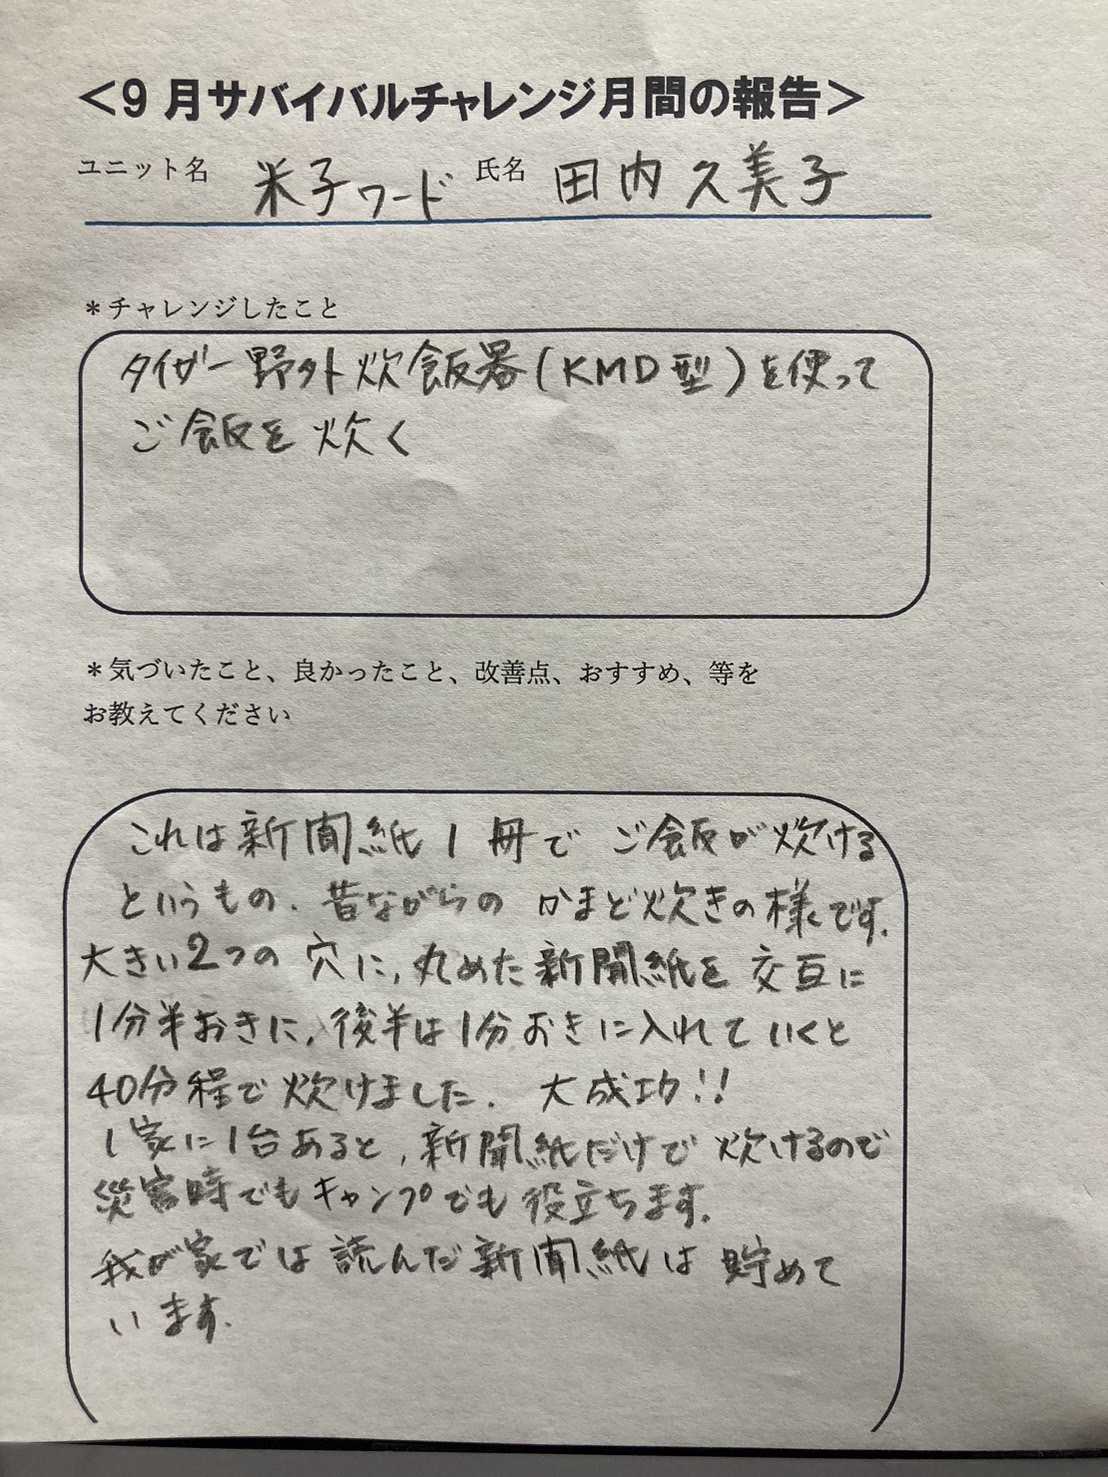 ＜9月サバイバルチャレンジ月間の報告＞
ユニット名 米子ワード 氏名 田内久美子
＊チャレンジしたこと
タイガー野外炊飯器(KMD型)を使って
ご飯を炊く
＊気づいたこと、良かったこと、改善点、おすすめ、等を
お教えてください
これは新聞紙1冊でご飯が炊ける
というもの.昔ながらのかまど炊きの様です.
大きい2つの穴に,丸めた新聞紙を交互に
1分半おきに,後半は1分おきに入れていくと
40分程で炊けました.大成功!!
1家に1台あると,新聞紙だけで炊けるので
災害時でもキャンプでも役立ちます.
我が家では読んだ新聞紙は貯めて
います.